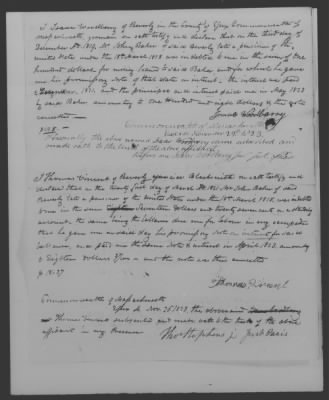 I Isaac Woodberry of Beverly in the County of Essex Commonwealth of
Massachusetts yeoman on oath testify and declare that on the third day of
December AD. 1819, Mr John Baker of said Beverly late a pensioner of the
United States under the 18th March 1818 was indebted to me in the sum of one
hundred dollars for money loaned to said Baker and for which he gave
me his promissory note of that date on interest. the interest was paid
December, 1821. and the principal and interest paid me in May 1823
by said Baker amounting to one hundred and eight dollars & the note
cancelled
Isaac Woodberry
$108.
Commonwealth of Massachusetts
Essex ss November 25th 1823.
Personally the above named Isaac Woodberry subscribed and
made oath to the truth of the above affidavit
Before me
Just. Peace
I Thomas Vincent of Beverly Blacksmith on oath testify and
declare that on the twenty first day of March AD. 1821 Mr John Baker of said
Beverly late a pensioner of the United States under the 18th March 1818 was indebted
to me in the sum Seventeen Dollars and twenty seven cents on settling
account, the same being the balance due me for labor in my occupation
that he gave me on said day his promissory note on interest for said
last sum, and paid me the same note & interest in April 1823 amounting
to Eighteen Dollars and the note was then cancelled
Thomas Vincent
Commonwealth of Massachusetts
Essex ss Nov. 25 1823, the above named
Thomas Vincent subscribed and made oath to the truth of the above
affidavit in my Presence
Thos Stephens Jr Just. Pacis